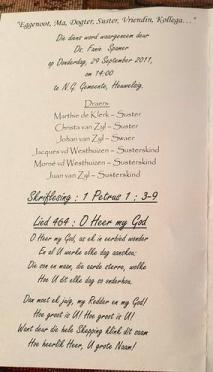 "Eggenoot, Ma, Dogter, Suster, Vriendin, Kollega..."
Die diens word waargeneem deur
Ds. Fanie Spamer
op Donderdag, 29 September 2011,
om 14:00
te N.G. Gemeente, Heuwelsig.
Draers:
Marthie de Klerk – Suster
Christa van Zyl – Suster
Johan van Zyl – Swaer
Jacques vd Westhuizen – Susterskind
Morné vd Westhuizen – Susterskind
Juan van Zyl – Susterskind
Skriflesing : 1 Petrus 1 : 3-9
Lied 464 : O Heer my God
O Heer my God, as ek in eerbied wonder
En al U werke elke dag aanskou:
Die son en maan, die aarde, sterre, wolke
Hoe U dit elke dag so onderhou.
Dan moet ek juig, my Redder en my God!
Hoe groot is U! Hoe groot is U!
Want deur die hele Skepping klink dit saam
Hoe heerlik Heer, U grote Naam!